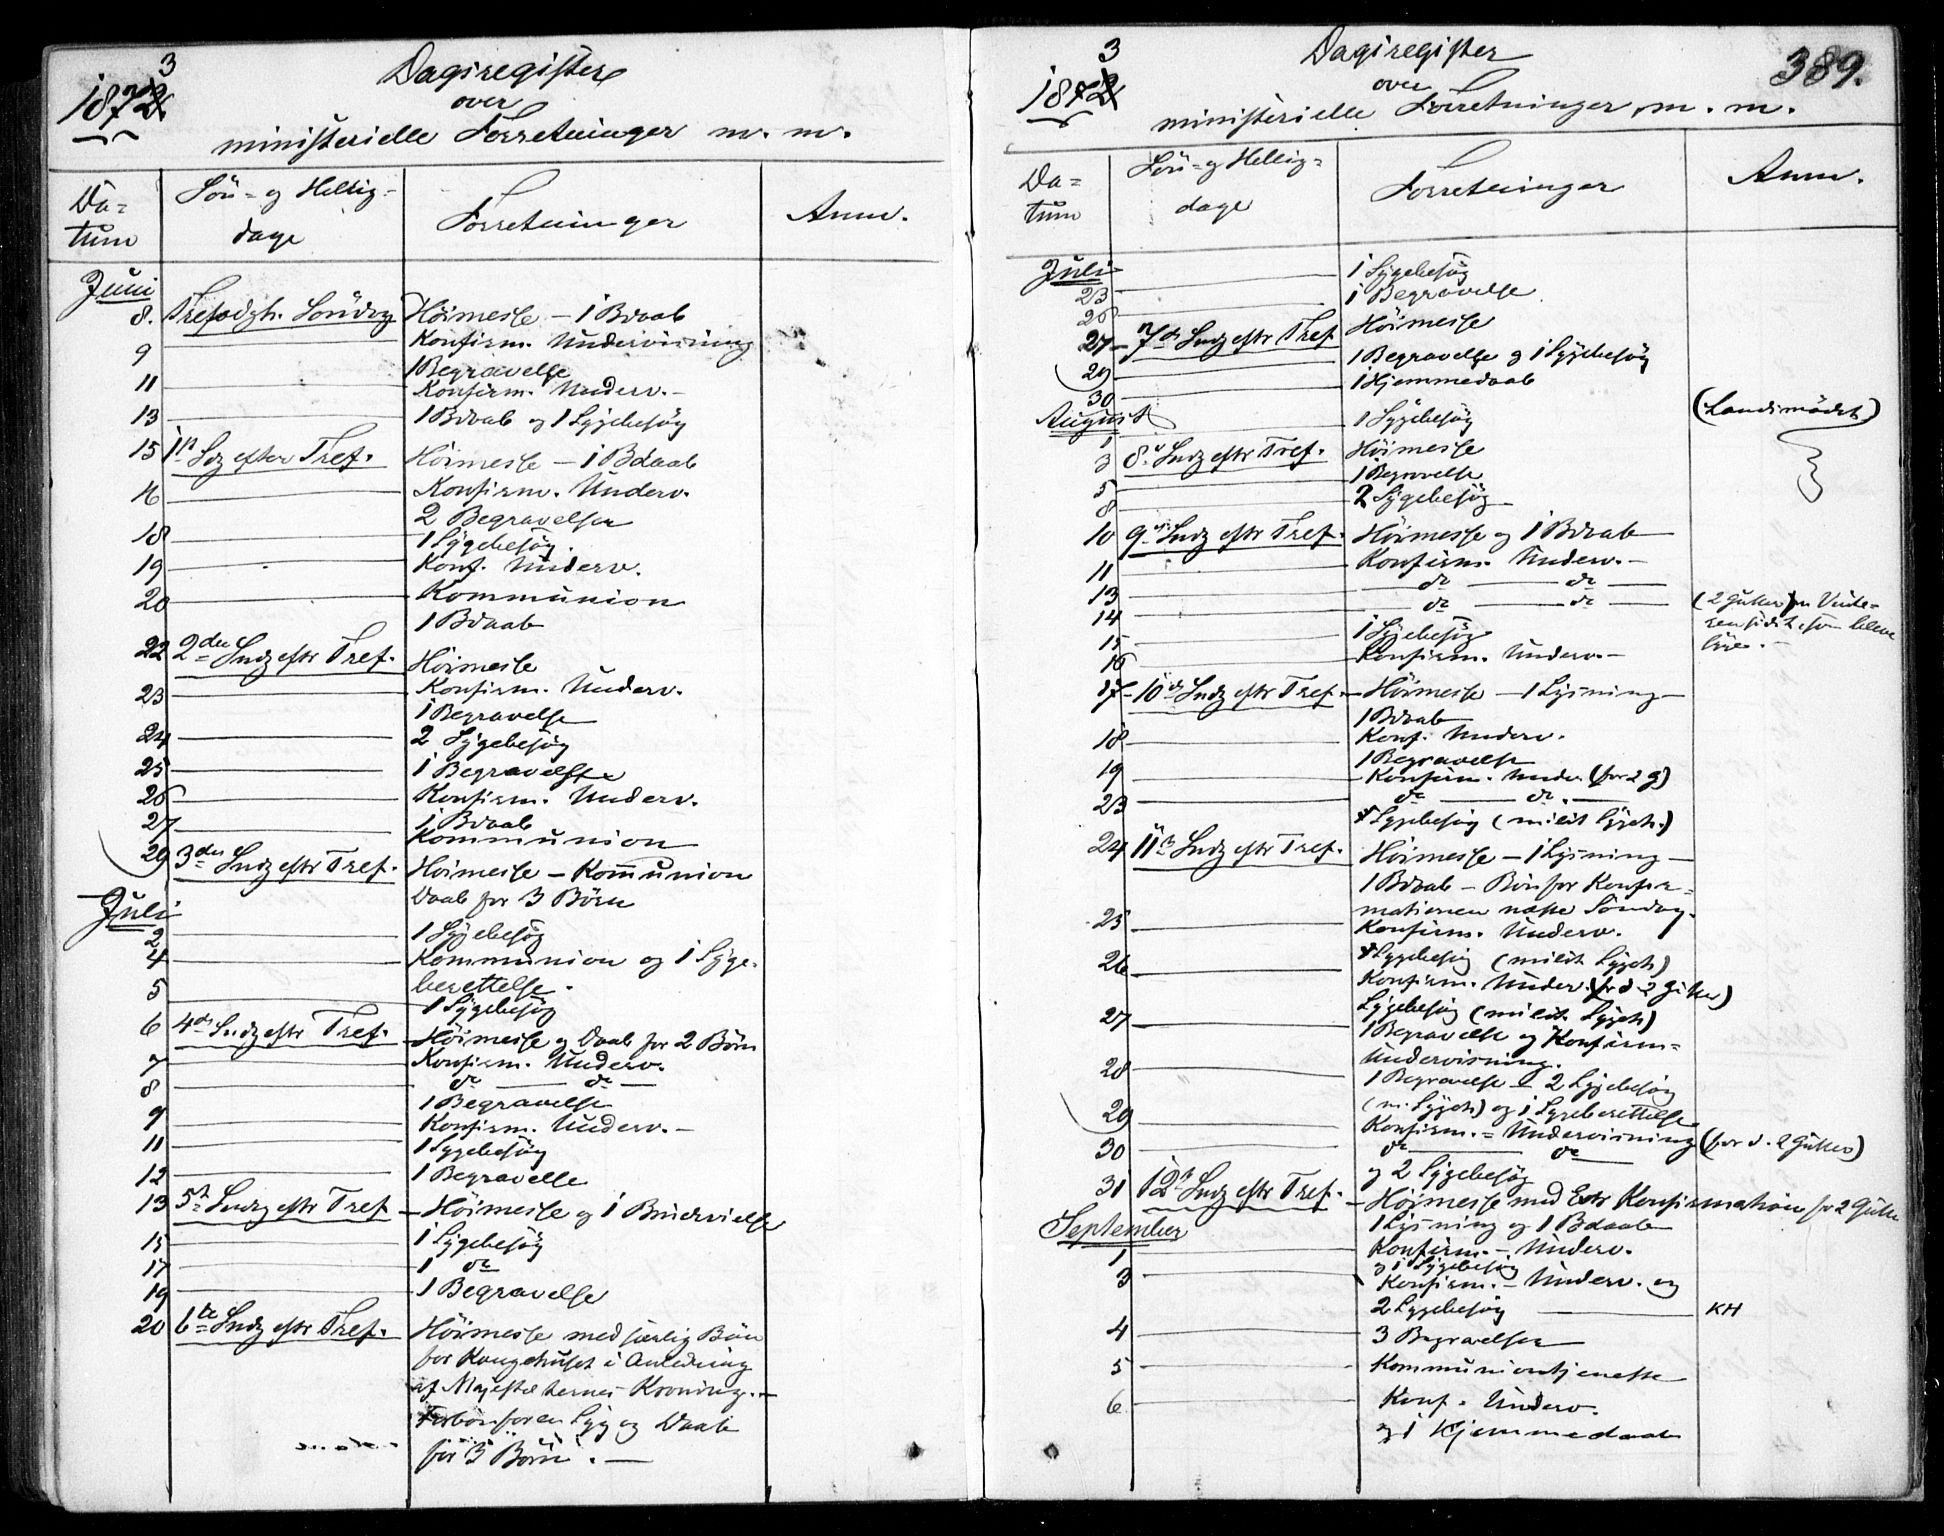 3
1872.
Dagsregister
over
ministerielle Forretninger m. m.
Da-
tum
Sön- og Hellig-
dage
Forretninger
Anm.
Juni
8. Trefoldgh. Söndag Höimesse — 1 Bdaab
Konfirm. Undervisning
9
1 Begravelse
11 Konfirm. Underv. -
13 1 Bdaab og 1 Sygebesög
15 1st Sdg efter Tref. Höimesse — 1 Bdaab
16 Konfirm. Underv.
2 Begravelser
18 1 Sygebesög.
19 Konf. Underv.
20 Kommunion
1 Bdaab
22 2den Sndg eftr Tref. Höimesse
23 Konfirm. Underv.
1 Begravelse
24 2 Sygebesög
25 1 Begravelse
26 Konfirm. Underv.
27 1 Bdaab
Kommunion
29 3die Sndg eftr Tref. Höimesse — Kommunion
Daab for 3 Börn
Juli
2 1 Sygebesög
4 Kommunion og 1 Syge-
berettelse.
5 1 Sygebesög
6 4de Sndg eftr Tref. Höimesse og Daab for 2 Börn
7 Konfirm. Underv.
8 do — do —
9 1 Begravelse
Konfirm. Underv. -
11 1 Sygebesög
12 1 Begravelse
13 5te Sndg eftr Tref — Höimesse og 1 Brudevielse
15 1 Sygebesög
17 1 do
19 1 Begravelse
20 6te Sndg eftr Tref. Höimesse med særlig Bön
for Kongehuset i Anledning
af Majestæternes Kroning. —
Forbön for en Syg og Daab
for 3 Börn. —
3
1872
Dagsregister
over
ministerielle Forretninger m. m.
389.
Da-
tum
Sön- og Hellig-
dage
Forretninger
Anm.
Juli
23 1 Sygebesög
26 1 Begravelse
27 — 7de Sndg eftr Tref Höimesse
29 1 Begravelse og 1 Sygebesög
30 1 Hjemmedaab
August
1 1 Sygebesög (Landsmödet)
3 8de Sndg eftr Tref. Höimesse
5 1 Begravelse
8 2 Sygebesög
10 9de Sndg eftr Tref. Höimesse og 1 Bdaab
11 Konfirm. Underv. —
13 do — do —
14 do — do — (2 Gutter)
15 1 Sygebesög
16 Konfirm. Underv. —
17 — 10de Sndg eftr Tref. — Höimesse — 1 Lysning —
1 Bdaab
18 Konf. Underv.
1 Begravelse
19 Konfirm. Underv. (for 2 G)
23 do — do. —
Sygebesög (milit Sygeh.)
24 11te Sndg eftr Tref. Höimesse — 1 Lysning —
1 Bdaab — Bön for Konfir-
mationen næste Söndag.
25 Konfirm. Underv.
26 Sygebesög (milit Sygeh)
Konfirm. Underv. (for d 2 Gutter)
27 Sygebesög (milit. Sygeh)
1 Begravelse og Konfirm-
Undervisning.
28 1 Begravelse — 2 Sygebesög
(m. Sygeh) og 1 Sygeberettelse
29 Konfirm. - Undervisning (for d. 2 Gutter)
30 do — do
og 2 Sygebesög
31 12te Sndg eftr Tref. — Höimesse med Extr Konfirmation for 2 Gutter
1 Lysning og 1 Bdaab
September
1 Konfirm. - Underv.
og 1 Sygebesög
3 Konfirm. - Underv. og
2 Sygebesög — KH
4 3 Begravelser
5 Kommuniontjeneste
6 Konf. Underv.
og 1 Hjemmedaab